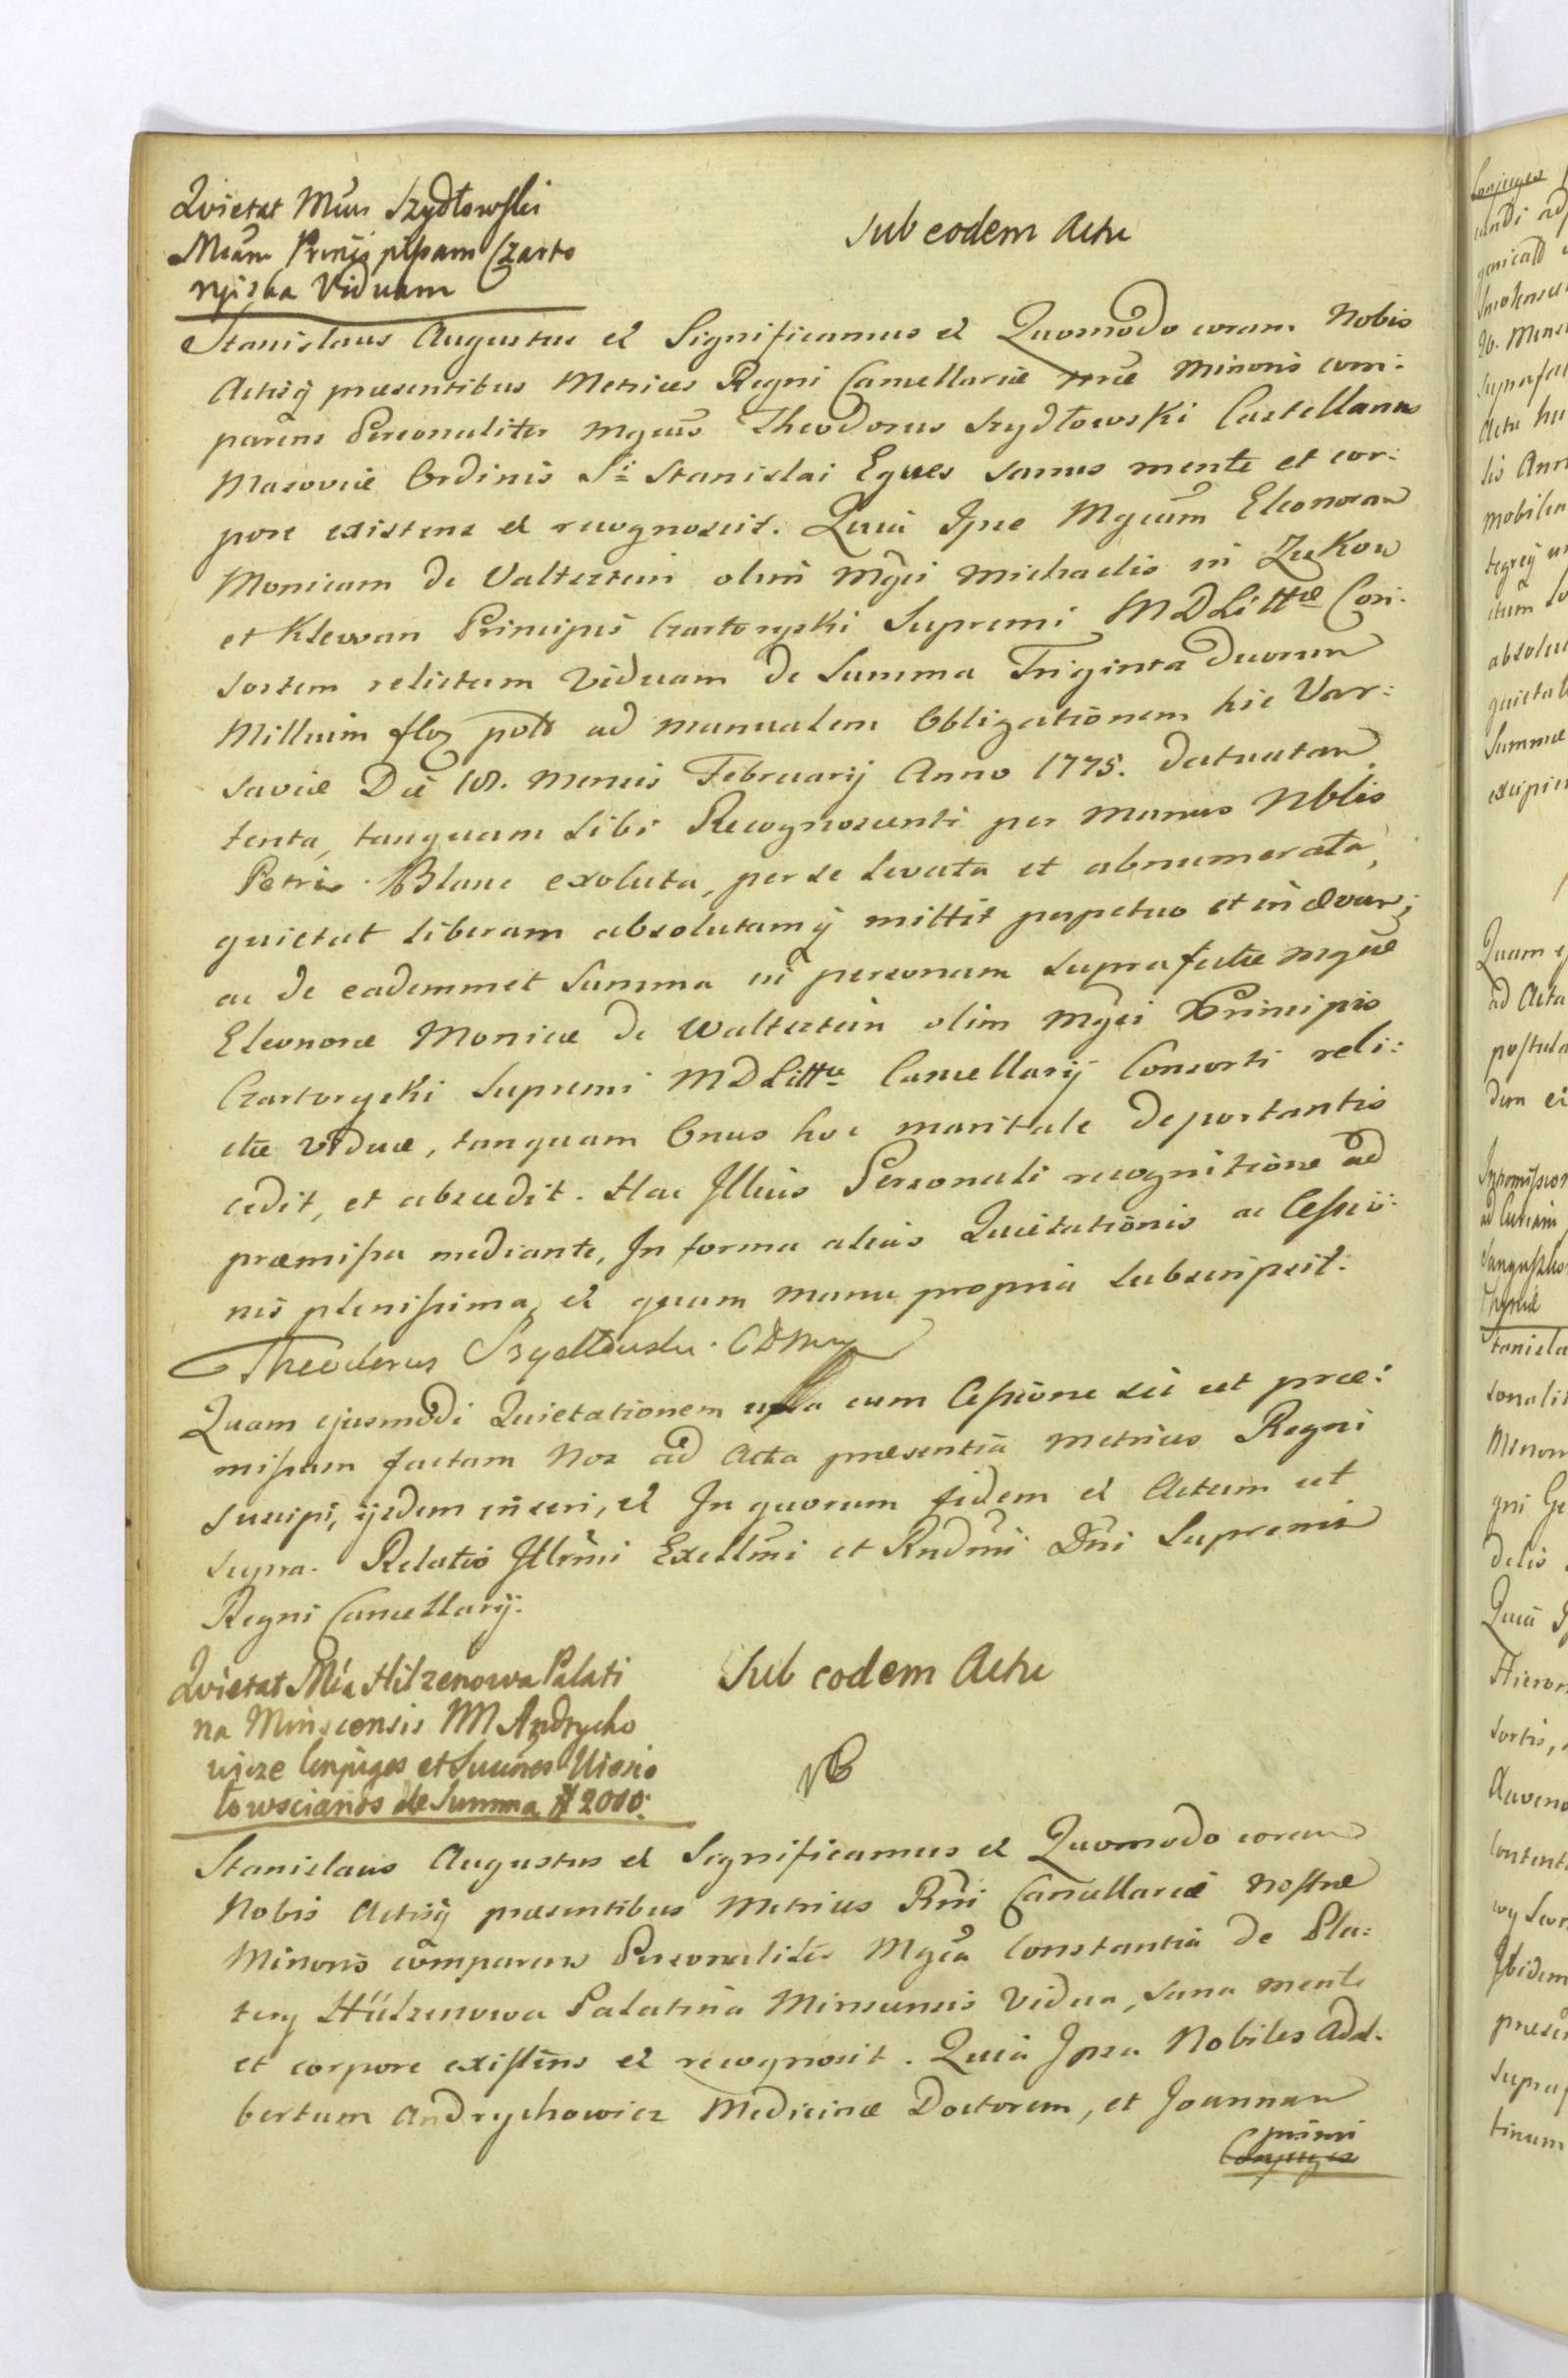 Quietat Mcus Szydłowski
Mcam Princip plpam Czarto
ryiska Viduam
Sub eodem Actu
Stanislaus Augustus et Significamus et Quomodo coram Nobis
Actisq præsentibus Metrices Regni Cancellariæ nræ Minoris com:
parens Personaliter Mgcus Theodorus Szydłowski Castellanus
Masoviæ Ordinis Sti Stanislai Eques sanus mente et cor:
pore existens et recognoscit. Quia Ipse Mgcam Eleonoram
Monicam de Valtsztein olim Mgci Michaelis in Zukow
et Klewan Principis Czartoryski Supremi M D Littæ Con:
sortem relictam Viduam de Summa Triginta Duorum
Millium floz pols ad manualem Obligationem hic Var:
saviæ Die 18. Mensis Februarij Anno 1775. datuatam
tenta, tanquam sibi Recognoscenti per manus Nblis
Petri Blanc exoluta, per se levata et abnumerata,
quietat liberam absolutamq mittit perpetuo et in ævum;
ac de eademmet Summa in personam suprafatæ Mgcæ
Eleonoræ Monicæ de Waltsztein olim Mgci Principis
Czartoryski Supremi M D Littæ Cancellarij Consorti reli:
ctæ viduæ, tanquam Onus hoc maritale deportantis
cedit, et abscedit. Hac Illius Personali recognitione ad
præmissa mediante, In forma alias Quietationis ac Cessio:
nis plenissima, et quam manu propria subscripsit.
Theodorus Szydłowski C D Maz
Quam ejusmodi Quietationem una cum Cessione sic ut præ:
missum factam Nos ad Acta præsentia Metrices Regni
suscipi, ijsdem inseri, et In quorum fidem et Actum ut
supra. Relatio Illrmi Excellmi et Rndmi Dni Supremi
Regni Cancellarij.
Quietat Mca Hilzenowa Palati
na Minscensis MM Andrycho
wicze Conjuges et Succres Uiesio
łowscianos de Summa # 2000.
Sub eodem Actu
NB
Stanislaus Augustus et Significamus et Quomodo coram
Nobis Actisq præsentibus Metrices Rni Cancellariæ Nostræ
Minoris comparens Personaliter Mgca Constantia de Pla:
tery Hülzenowa Palatina Minscensis Vidua, sana mente
et corpore existens et recognoscit. Quia Ipsa Nobiles Adal:
bertum Andrychowicz Medicinæ Doctorem, et Joannam
primi
Conjuges